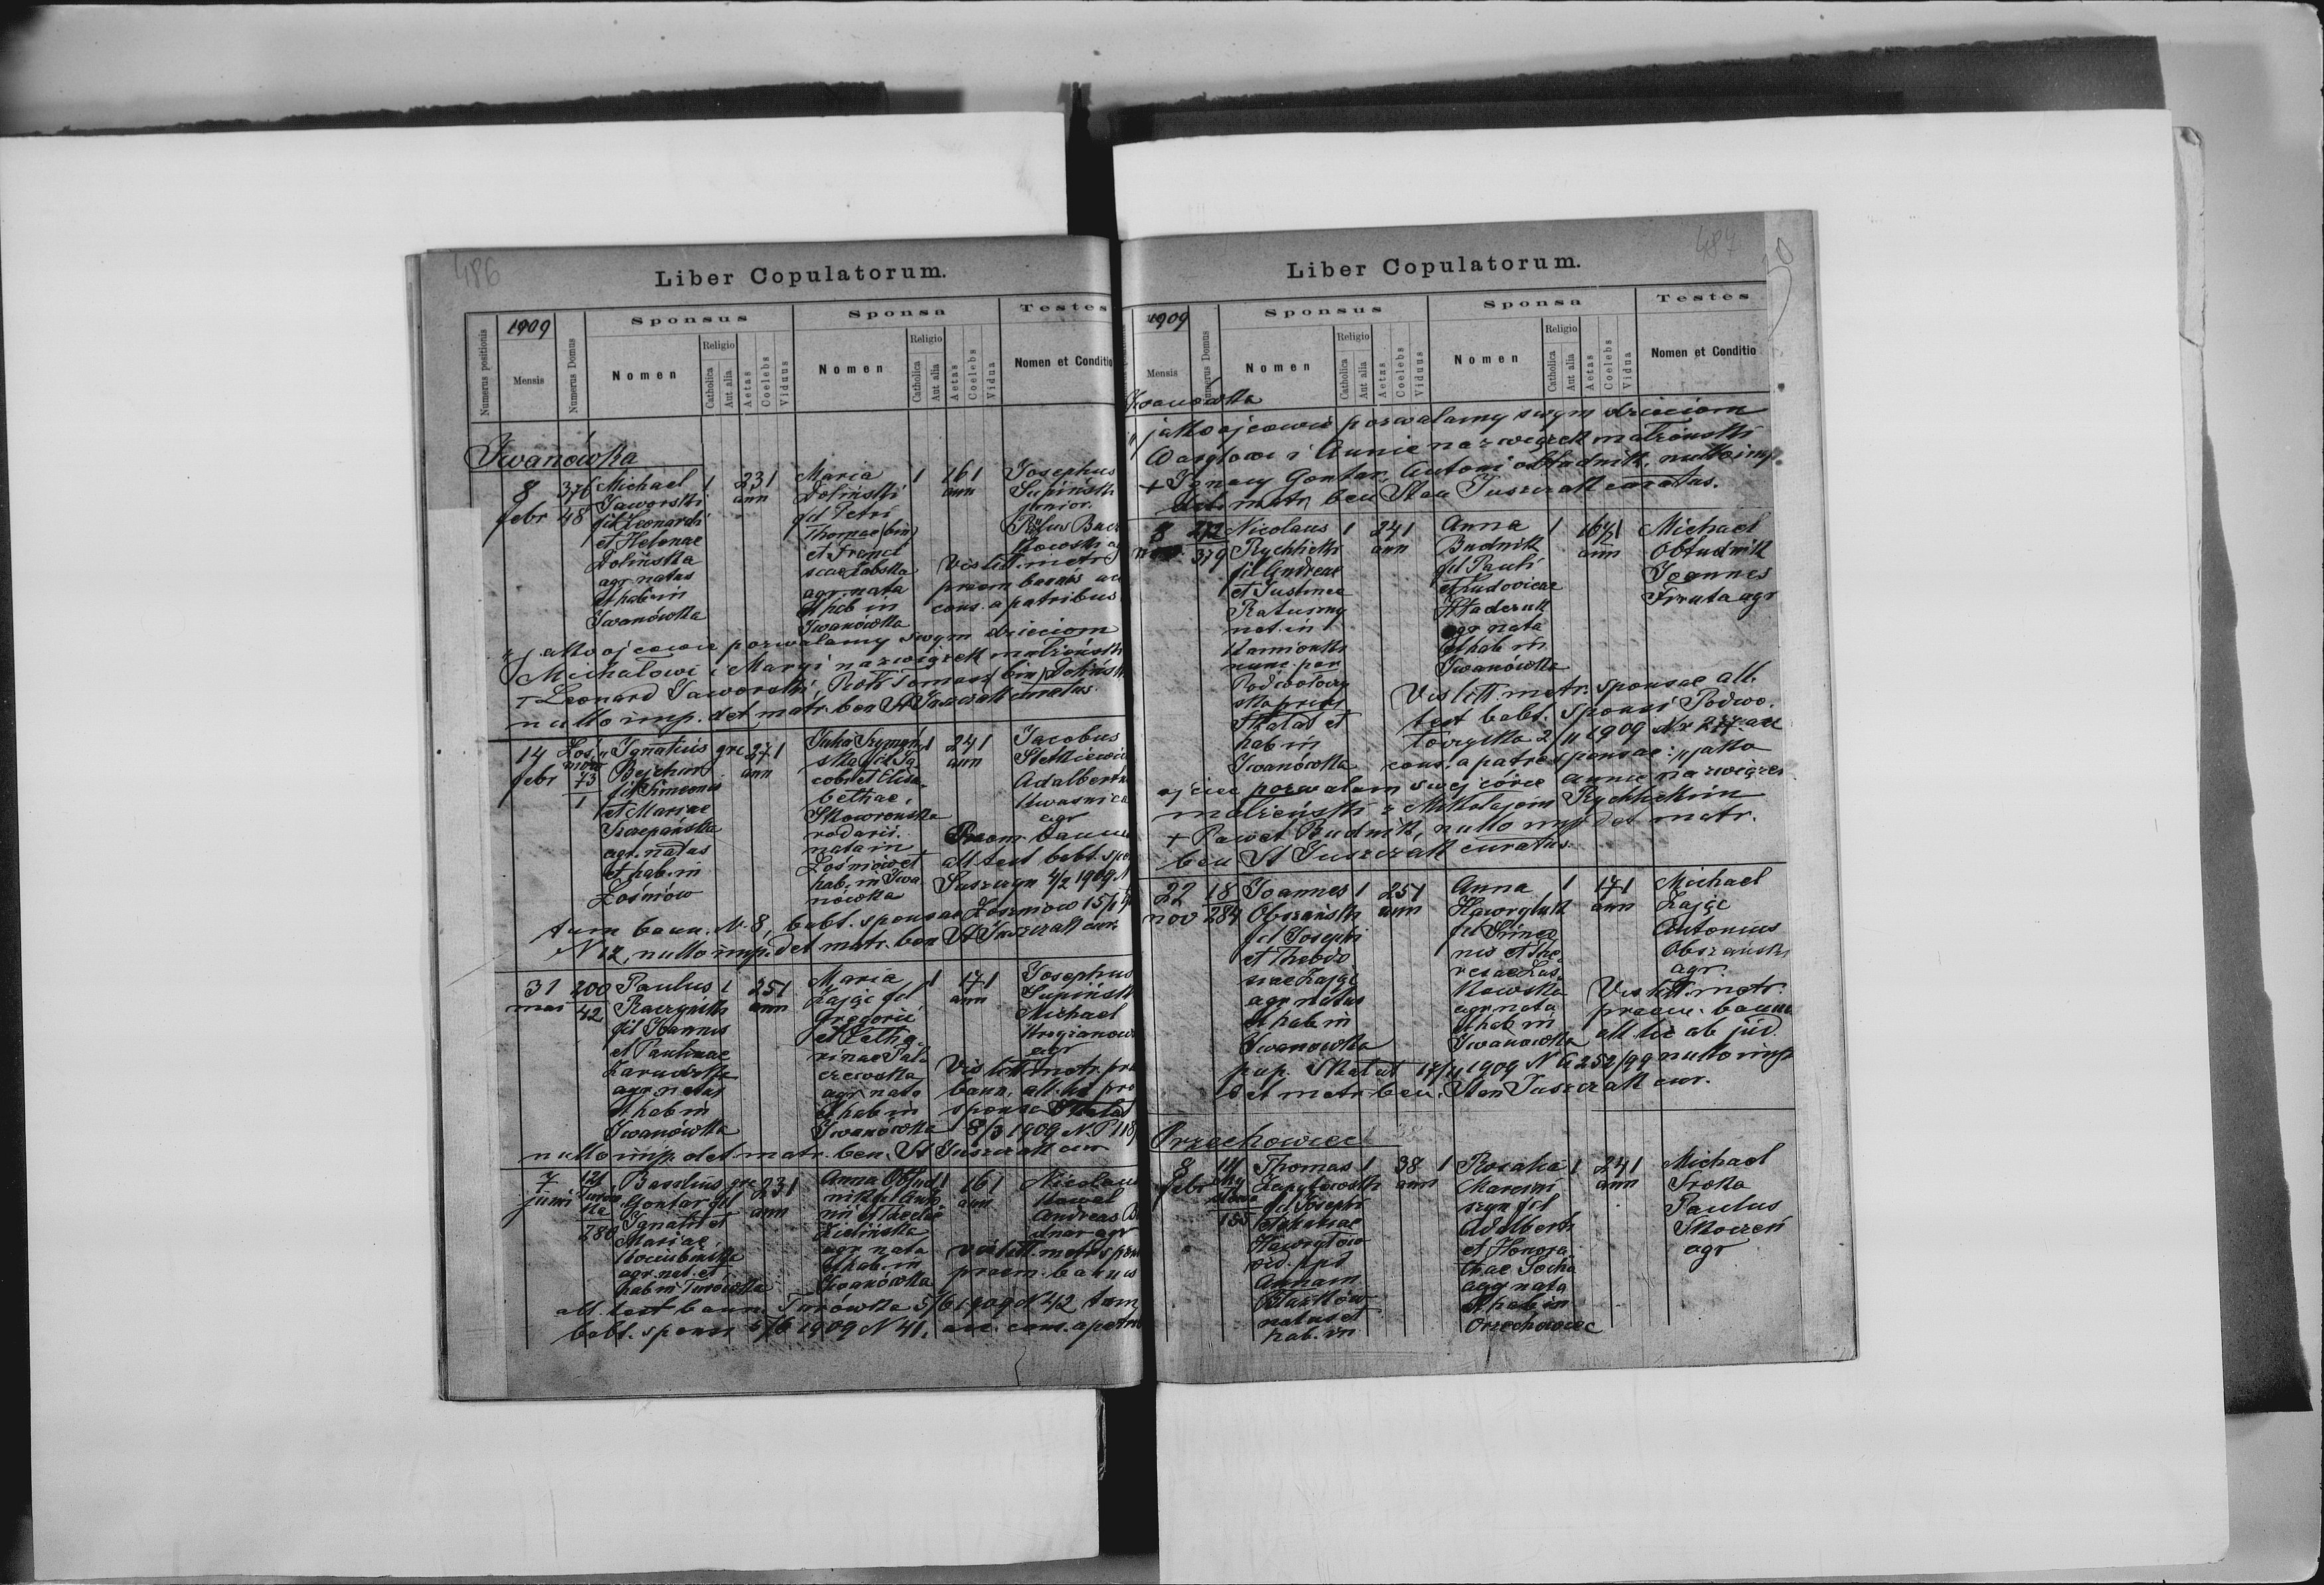 486
Liber Copulatorum.
Numerus positionis
1909
Mensis
Numerus Domus
Sponsus
Nomen
Religio
Catholica
Aut alia
Aetas
Coelebs
Viduus
Sponsa
Nomen
Religio
Catholica
Aut alia
Aetas
Coelebs
Vidua
Testes
Nomen et Conditio
Iwanówka
8 febr
376
48
Michael
Jaworski
fil Leonardi
et Helenae
Dolińska
agr. natus
et hab in
Iwanówka
1 23 1
ann
Maria
Doliński
fil Petri
Thomae (bin)
et Franci
scae Labska
agr. nata
et hab in
Iwanówka
1 16 1
ann
Josephus
Supiński
junior.
Vis litt. metr
praem. bannis
cons. a patribus
"jako ojcowie pozwalamy swym dzieciom
Michałowi i Maryi na związek małżeński
+ Leonard Jaworski, Piotr Tomasz (bin) Doliński
nullo imp. det. matr. ben St Juszczak curatus.
14
febr
73
1
Ignatius
fil Simeonis
et Mariae
Szczepańska
agr. natus
et hab. in
Łośniów
gr c 27 1
ann
Julia Szymań
ska fil Ja
cobi et Elisa
bethae
Skowrońska
nata in
Łośniów et
hab. in Iwa
nówka
1 24 1
ann
Jacobus
Adalbertus
agr
Praem. bann
all. test babt. spon
Suszczyn 4/2 1909 N
tum bann. N. 8, babt. sponsae Łoszniów
N 12, nullo imp. det matr. ben St Juszczak cur.
31
mai
200
42
Paulus
Raczyński
fil Joannis
et Paulinae
agr. natus
et hab in
Iwanówka
1 25 1
ann
Maria
Zając fil
Gregorii
et Catha
rinae Pal
czewska
agr nata
et hab in
Iwanówka
1 17 1
ann
Josephus
Supiński
Michael
agr
Vis litt. metr. pra
bann. all. lic pro
sponsa Skałat
8/3 1909 N. P 118
nullo imp. det. matr. ben. St Juszczak cur
7
juni
Turów
ka
280
Basilius
Gontar fil
Ignatii et
Mariae
agr. nat. et
hab in Turówka
gr c 23 1
ann
Anna Obłud
nik fil Anto
nii et Theclae
Zielińska
agr nata
et hab. in
Iwanówka
1 16 1
ann
Nicolaus
Kowal
Andreas
agr
vis litt. metr spon
praem. bannis
all. test bann. Turówka 5/6 1909 N 42 tum
babt. sponsi 5/6 1909 N 41, acc. cons. a patri
487
Liber Copulatorum.
1909
Mensis
Numerus Domus
Sponsus
Nomen
Religio
Catholica
Aut alia
Aetas
Coelebs
Viduus
Sponsa
Nomen
Religio
Catholica
Aut alia
Aetas
Coelebs
Vidua
Testes
Nomen et Conditio
Iwanówka
"jako ojcowie pozwalamy swym dzieciom
Wasylowi i Annie na związek małżeński
+ Ignacy Gontar, Antoni Obłudnik, nullo imp.
det. matr. ben Stan Juszczak curatus.
8
nov.
272
379
Nicolaus
Rychlicki
fil Andreae
et Justinae
Ratuszny
nat. in
Kamionki
nunc par
Podwołoczy
ska prius
Skałat et
hab in
Iwanówka
1 24 1
ann
Anna
Budnik
fil Pauli
et Ludovicae
agr nata
et hab in
Iwanówka
1 16 1/2 1
ann
Michael
Obłudnik
Joannes
Fruta agr
Vis litt. metr. sponsae all.
test babt. sponsi Podwo
łoczyska 2/11 1909 Nr 277 acc
cons. a patre sponsae: "jako
ojciec pozwalam swej córce Annie na związek
małżeński z Mikołajem Rychlickim
+ Paweł Budnik, nullo imp det matr.
ben St Juszczak curatus.
22
nov
18
284
Joannes
Obszański
fil Josephi
et Theodo
siae Zając
agr natus
et hab in
Iwanówka
1 25 1
ann
Anna
Hawryluk
fil Simeo
nis et The
resae Las
kowska
agr nata
et hab in
Iwanówka
1 17 1
ann
Michael
Zając
Antonius
Obszański
agr.
Vis litt. metr.
praem. bannis
all lic ab jud
pup. Skałat 17/11 1909 N G 252/99 nullo imp
det matr ben. Stan Juszczak cur.
Orzechowiec
8
febr
155
Thomas
fil Josephi
et Mariae
vid. ppd
Annam
natus et
hab. in
1 38 1
ann
Rosalia
Marcini
szyn fil
Adalberti
et Honora
thae Socha
agr nata
et hab in
Orzechowiec
1 24 1
ann
Michael
Sroka
Paulus
Skoczeń
agr